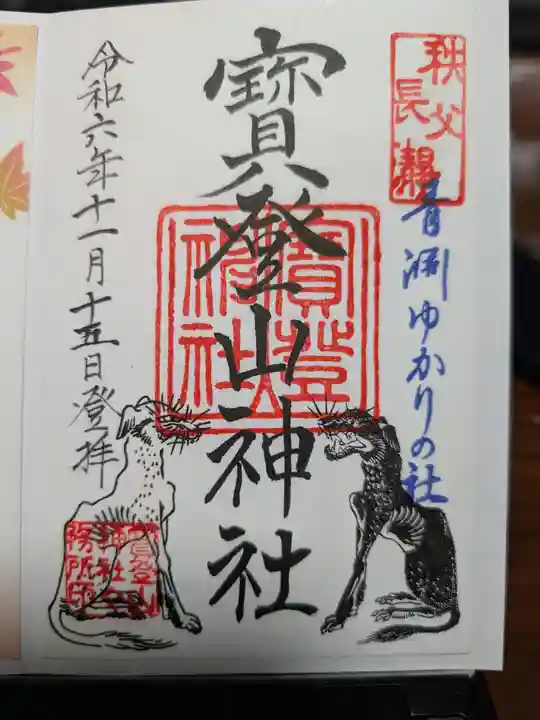 秩父
長瀞
青渊ゆかりの社
寶登山神社
寶登山
神社
令和六年十一月十五日登拝
寶登山
神社
務所印